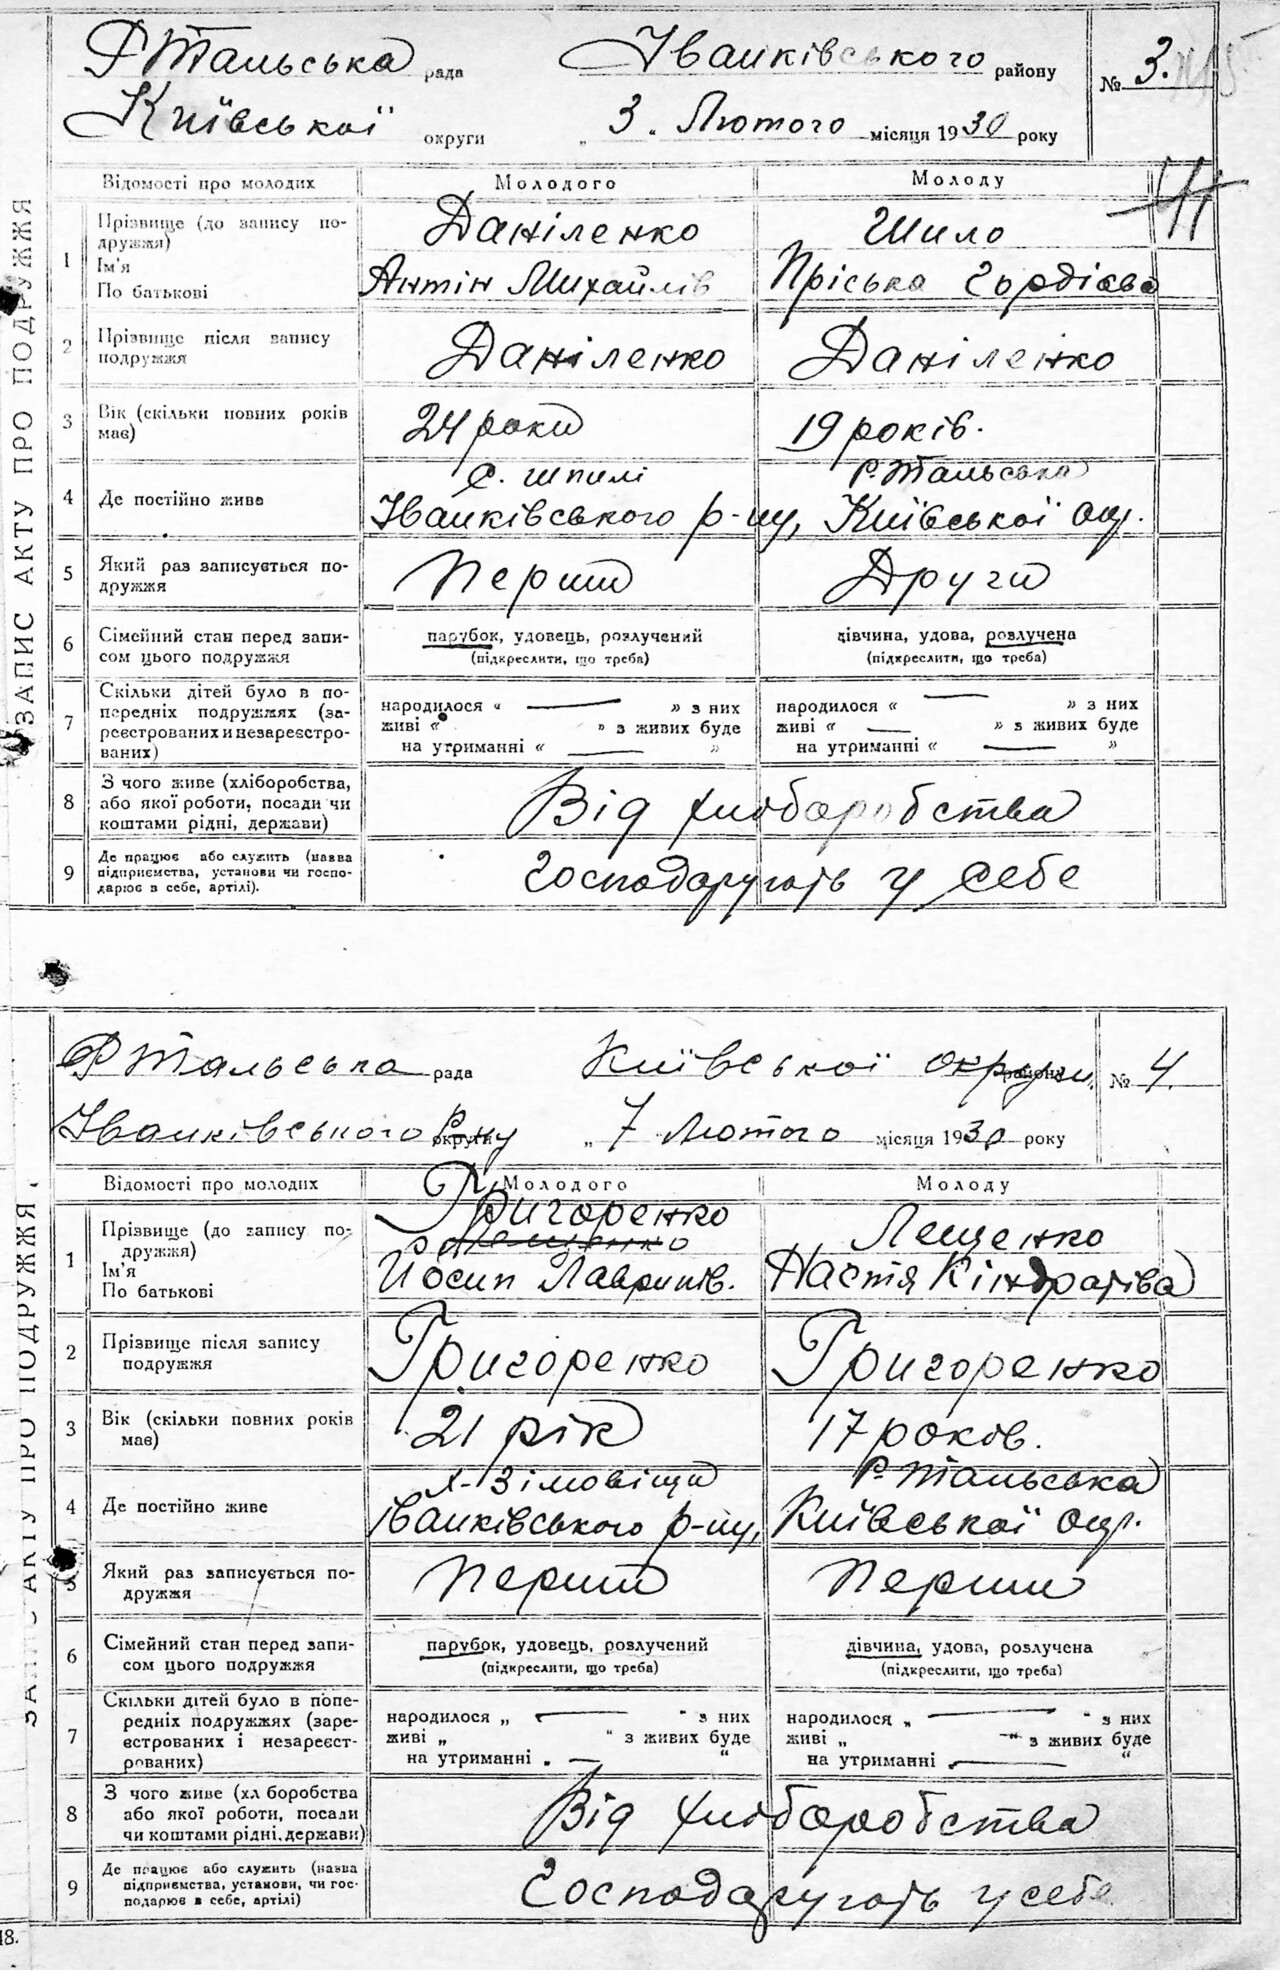 ЗАПИС АКТУ ПРО ПОДРУЖЖЯ
Р Тальська рада Іванківського району № 3.
Київської округи „ 3 „ Лютого місяця 1930 року
Відомості про молодих Молодого Молоду
1 Прізвище (до запису по-
дружжя) Даніленко Шило
Ім'я
По батькові Антін Михайлів Пріська Гордієва
2 Прізвище після запису
подружжя Даніленко Даніленко
3 Вік (скільки повних років
має) 24 роки 19 років.
с. Шпилі Р. Тальська
4 Де постійно живе Іванківського р-ну, Київської окр.
5 Який раз записується по-
дружжя Перший Други
6 Сімейний стан перед запи- парубок, удовець, розлучений дівчина, удова, розлучена
сом цього подружжя (підкреслити, що треба) (підкреслити, що треба)
Скільки дітей було в по-
7 передніх подружжях (за- народилося « — » з них народилося « — » з них
реєстрованих и незареєстро- живі « » з живих буде живі « — » з живих буде
ваних) на утриманні « — » на утриманні « — »
З чого живе (хліборобства,
8 або якої роботи, посади чи Від хліборобства
коштами рідні, держави)
Де працює або служить (назва
9 підприємства, установи чи госпо- Господарують у себе
дарює в себе, артілі).
ЗАПИС АКТУ ПРО ПОДРУЖЖЯ
Р Тальська рада Київської округи району № 4.
Іванківського Р-ну округи „ 7 Лютого місяця 1930 року
Відомості про молодих Молодого Молоду
1 Прізвище (до запису по- Григоренко
дружжя) Лещенко Лещенко
Ім'я
По батькові Йосип Лавринів. Настя Кіндратіва
2 Прізвище після запису
подружжя Григоренко Григоренко
3 Вік (скільки повних років
має) 21 рік 17 років.
х-Зімовіща Р. Тальська
4 Де постійно живе Іванківського р-ну, Київської окр.
5 Який раз записується по-
дружжя Перший Перший
6 Сімейний стан перед запи- парубок, удовець, розлучений дівчина, удова, розлучена
сом цього подружжя (підкреслити, що треба) (підкреслити, що треба)
Скільки дітей було в попе-
7 редніх подружжях (заре- народилося „ — " з них народилося „ — " з них
єстрованих і незареєст- живі „ " з живих буде живі „ — " з живих буде
рованих) на утриманні „ — " на утриманні „ — "
З чого живе (хл боробства
8 або якої роботи, посади Від хліборобства
чи коштами рідні, держави)
Де працює або служить (назва
9 підприємства, установи, чи гос- Господарують у себе
подарює в себе, артілі)
18.